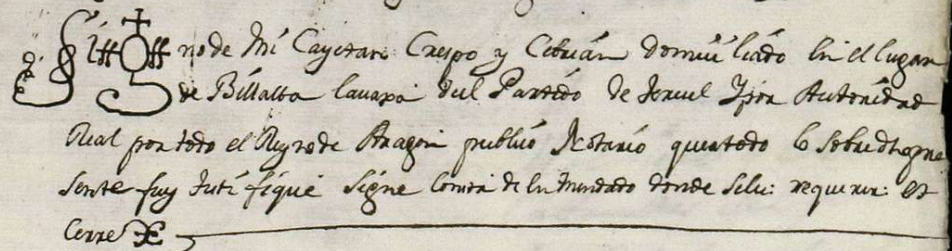 Sig no de Mi Cayetano Crespo y Cebrian domiciliado en el lugar
de Billalba la vaxa del Partido de Teruel y por Autoridad
Real por todo el Reyno de Aragon publico Notario que a todo lo sobredho pre
sente fuy testifique signe con de en mendado donde se lei: requerir: et
Cerre